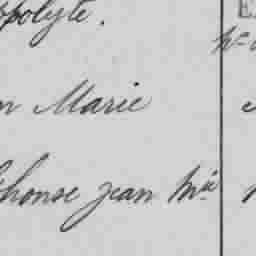 ppolyte.
n Marie
phonse jean Mie